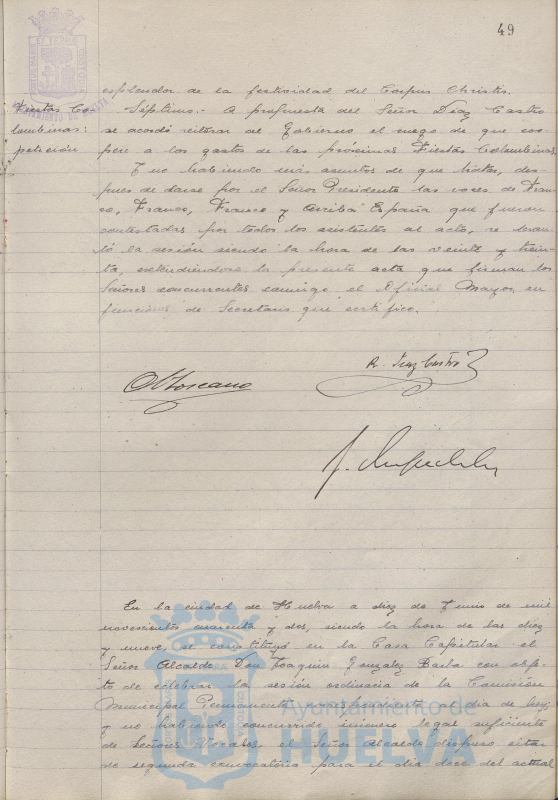 49
esplendor de la festividad del Corpus Christi.
Fiestas Co-
lombinas:
petición
Séptimo.- A propuesta del Señor Díaz Castro
se acordó reiterar al Gobierno el ruego de que coo-
pere a los gastos de las próximas Fiestas Colombinas.
Y no habiendo más asuntos de que tratar, des-
pues de darse por el Señor Presidente las voces de Fran-
co, Franco, Franco y Arriba España que fueron
contestadas por todos los asistentes al acto, se levan-
tó la sesión siendo la hora de las veinte y trein-
ta, extendiéndose la presente acta que firman los
Señores concurrentes conmigo el Oficial Mayor en
funciones de Secretario que certifico.
R. Diaz Castro
En la ciudad de Huelva a diez de Junio de mil
novecientos cuarenta y dos, siendo la hora de las diez
y nueve, se constituyó en la Casa Capitular el
Señor Alcalde Don Joaquín González Barba con obje-
to de celebrar la sesión ordinaria de la Comisión
Municipal Permanente correspondiente al dia de hoy
y no habiendo concurrido número legal suficiente
de Señores Vocales, el Señor Alcalde dispuso citar
de segunda convocatoria para el dia doce del actual
Ayuntamiento de
HUELVA